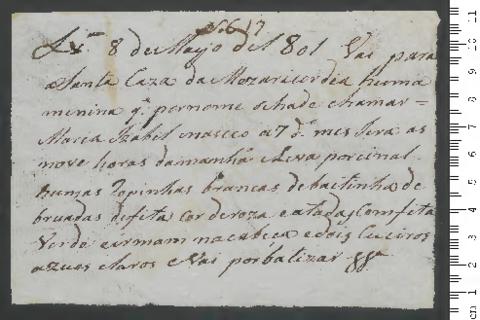 N. 617
Lx.ª 8 de Mayo de 1801 Vai para
a Santa Caza da Mozaricordia huma
menina q. por nome se hade chamar =
Maria Izabel nasceo a 7 d. mes sera as
nove horas da manhã e Leva por cinal
humas Ropinhas brancas de baitinha de
bruadas de fita Cor de roza e atadas Com fita
Verde e irmam na cabeça e dois Cueiros
azues claros e Vai por batizar